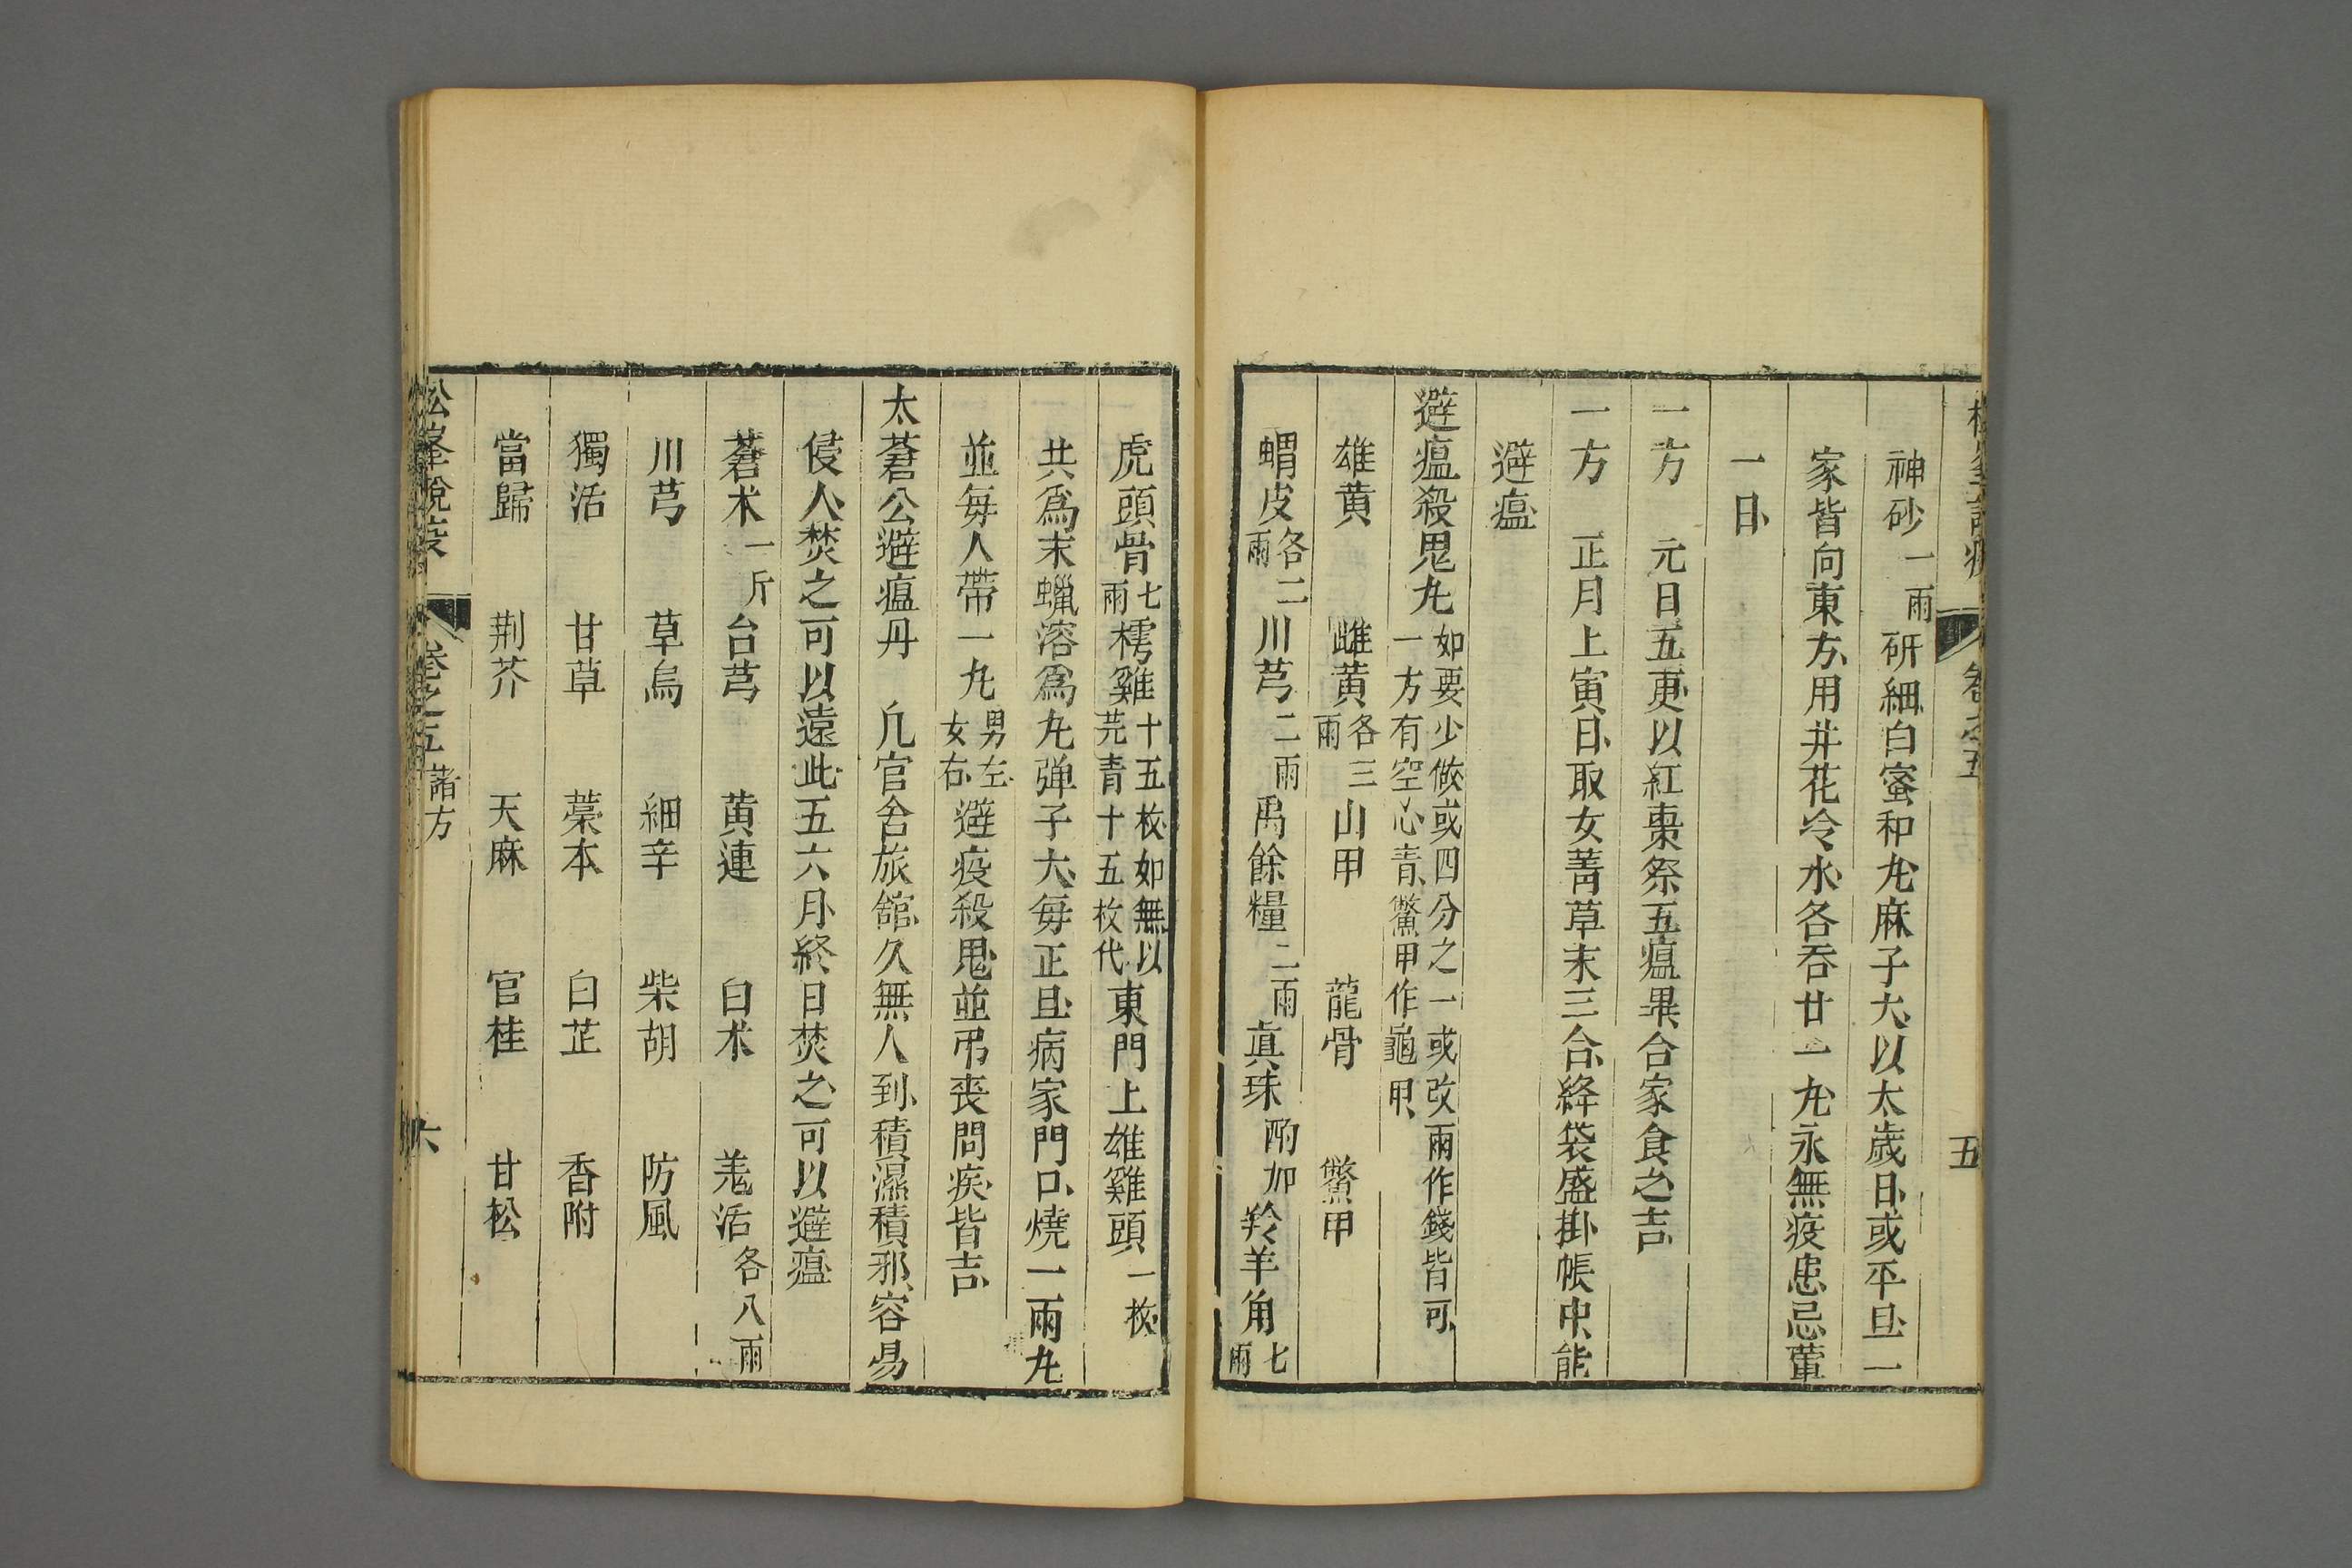 卷之五 五
神砂一兩研細白蜜和丸麻子大以太歲日或平旦一
家皆向東方用井花冷水各吞廿一丸永無疫患忌葷
一日
一方 元日五更以紅棗祭五瘟畢合家食之吉
一方 正月上寅日取女菁草末三合絳袋盛掛帳中能
避瘟
避瘟殺鬼丸如要少做或四分之一或改兩作錢皆可
一方有空心青鱉甲作龜甲
雄黄 雌黄各三兩 山甲 龍骨 鱉甲
蝟皮各二兩 川芎二兩 禹餘糧二兩 真珠酌加 羚羊角七兩
虎頭骨七兩 樗雞十五枚如無以芫青十五枚代 東門上雄雞頭一枚
共為末蠟溶為丸弹子大每正旦病家門口燒一兩丸
並每人帶一丸男左女右避疫殺鬼並弔喪問疾皆吉
太蒼公避瘟丹 凢官舍旅館久無人到積濕積邪容易
侵人焚之可以遠此五六月終日焚之可以避瘟
蒼术一斤 台芎 黄連 白术 羌活各八兩
川芎 草烏 細辛 柴胡 防風
獨活 甘草 藁本 白芷 香附
當歸 荆芥 天麻 官桂 甘松
松峯說疫 卷之五 諸方 六